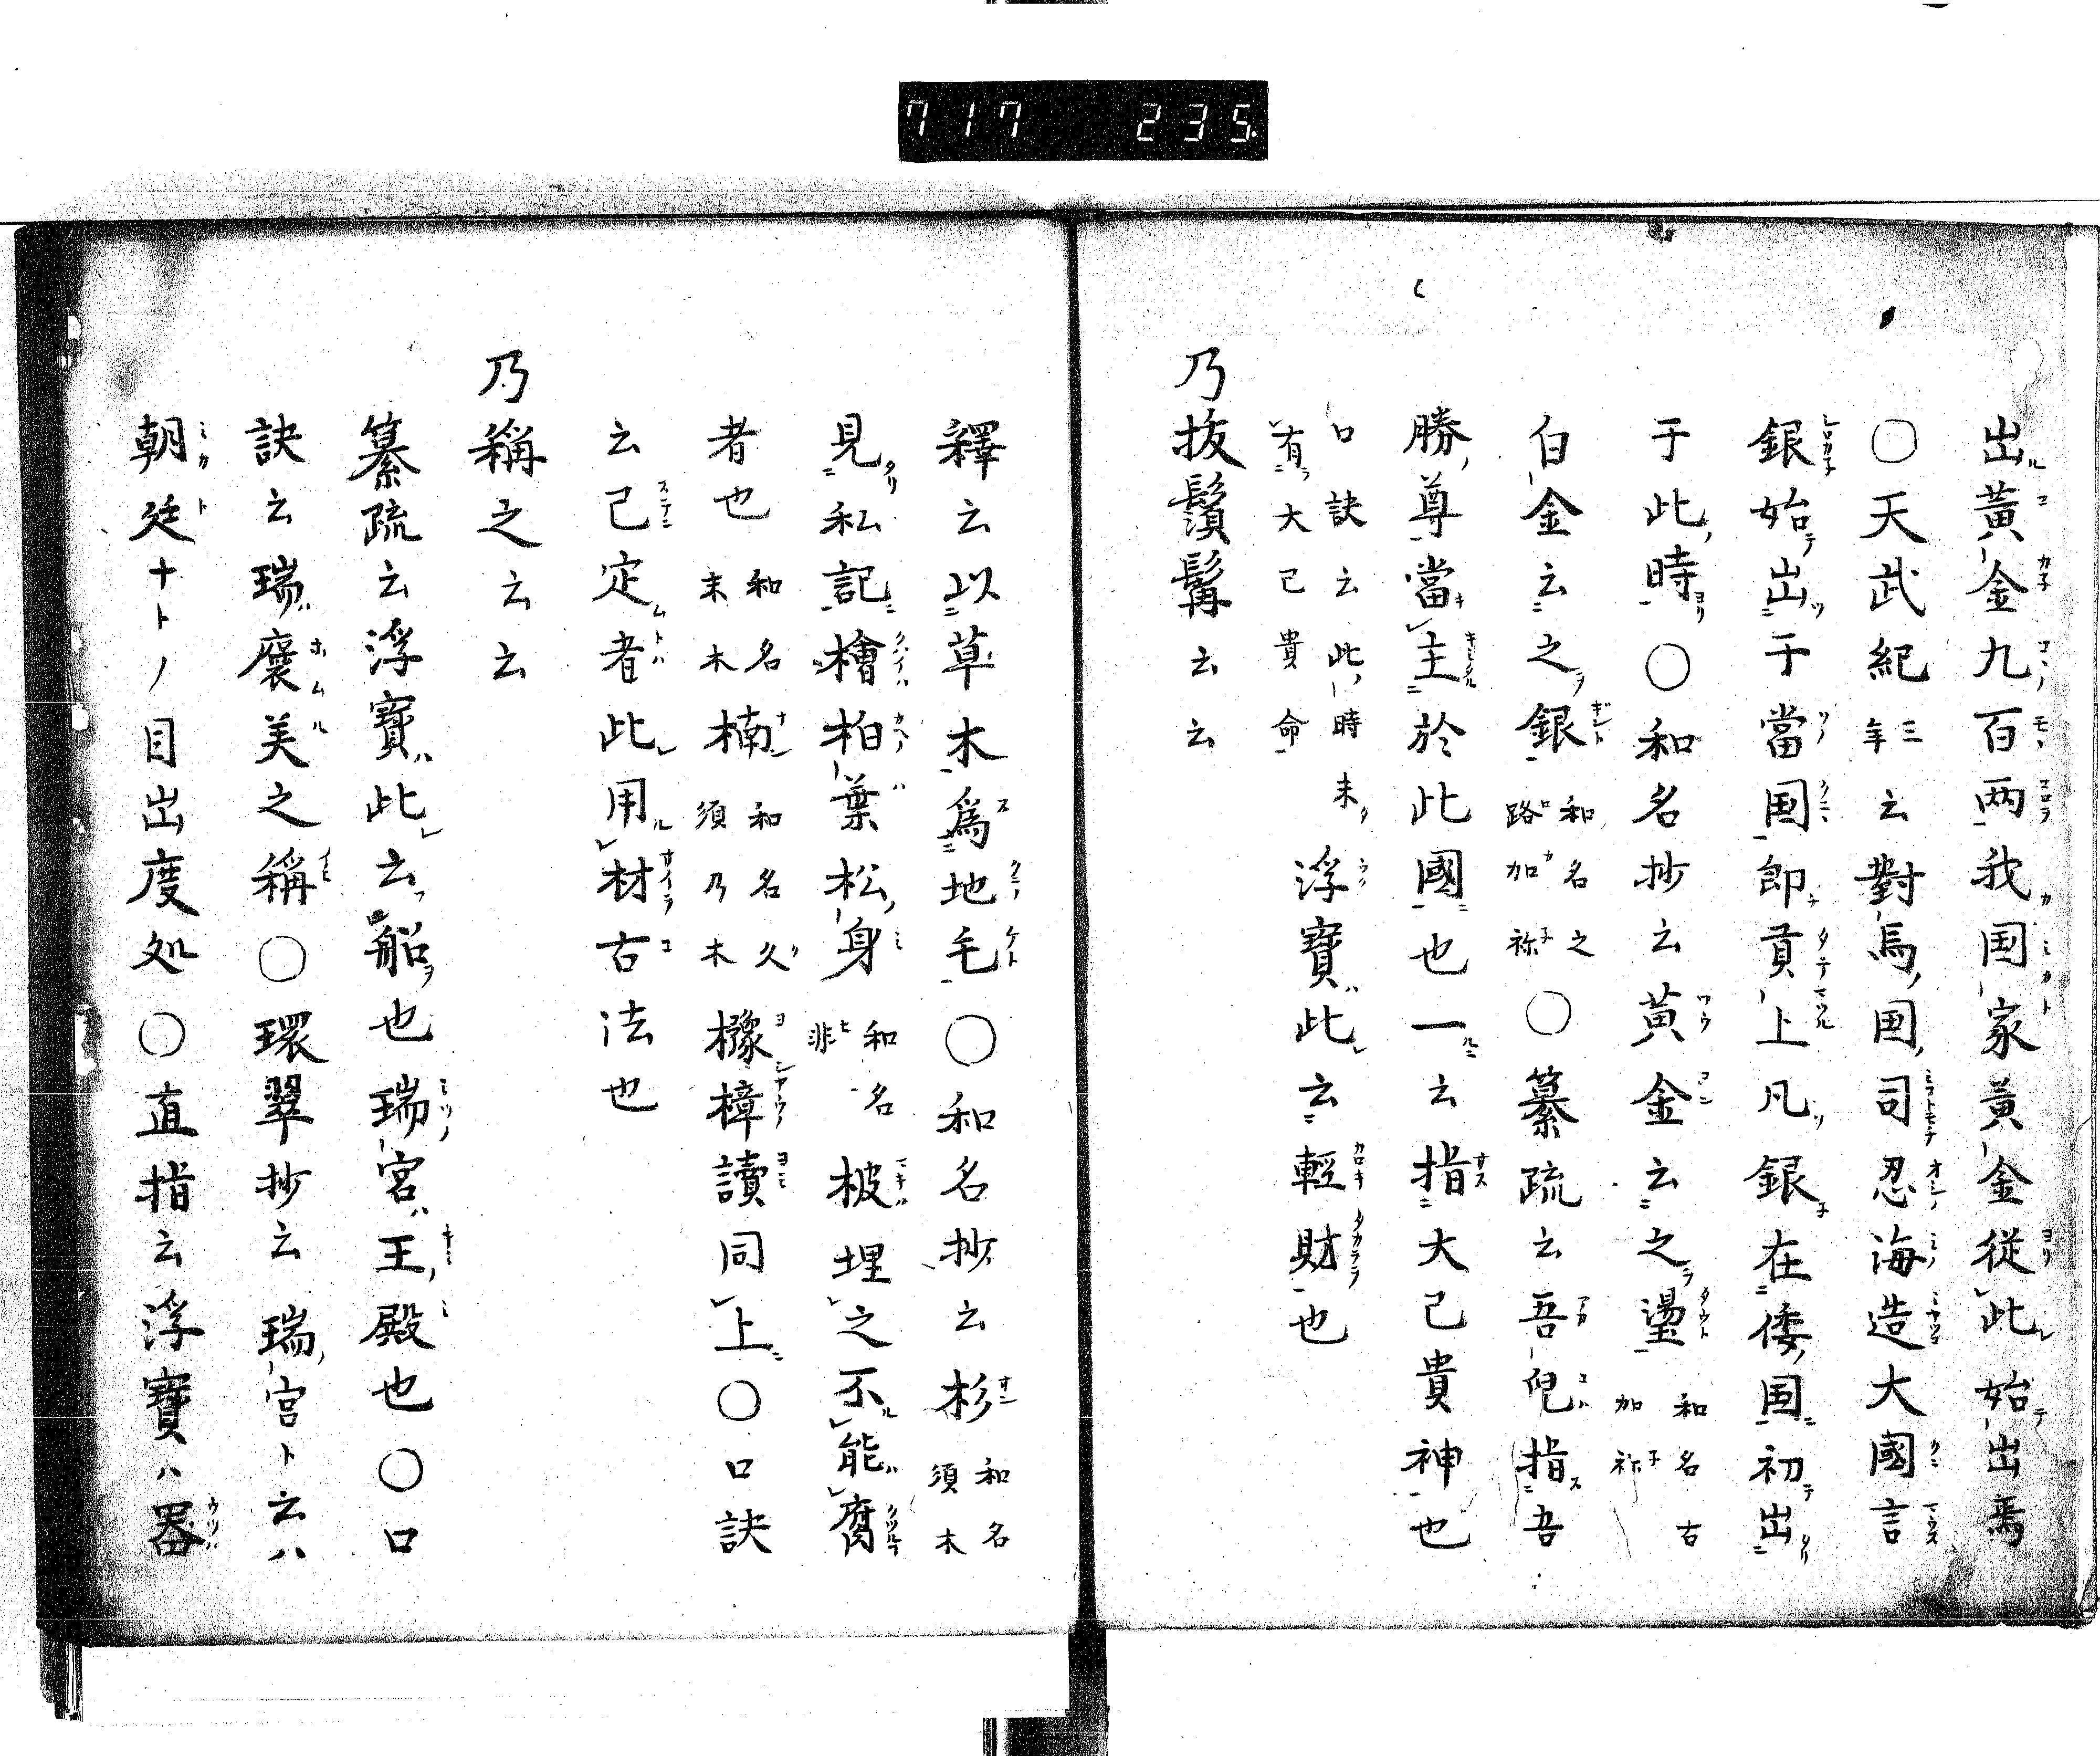 717 235
出黃金九百两我国家黃金従此始出焉
○天武紀三年云對馬国司忍海造大國言
銀始出于當国即貢上凡銀在倭国初出
于此時○和名抄云黃金云之璗和名古加祢
白金云之銀和名之路加祢○纂疏云吾兒指吾
勝尊當主於此國也一云指大己貴神也
口訣云此時未有大己貴命 浮寶此云輕財也
乃抜鬚髯云云
釋云以草木為地毛○和名抄云杉和名須木
見私記檜柏葉松身和名非 柀埋之不能腐
者也和名末木楠和名久須乃木橡樟讀同上○口訣
云已定者此用材古法也
乃稱之云云
纂疏云浮寶此云船也瑞宮王殿也○口
訣云瑞襃美之稱○環翠抄云瑞宮ト云ハ
朝廷ナトノ目出度処○直指云浮寶ハ噐